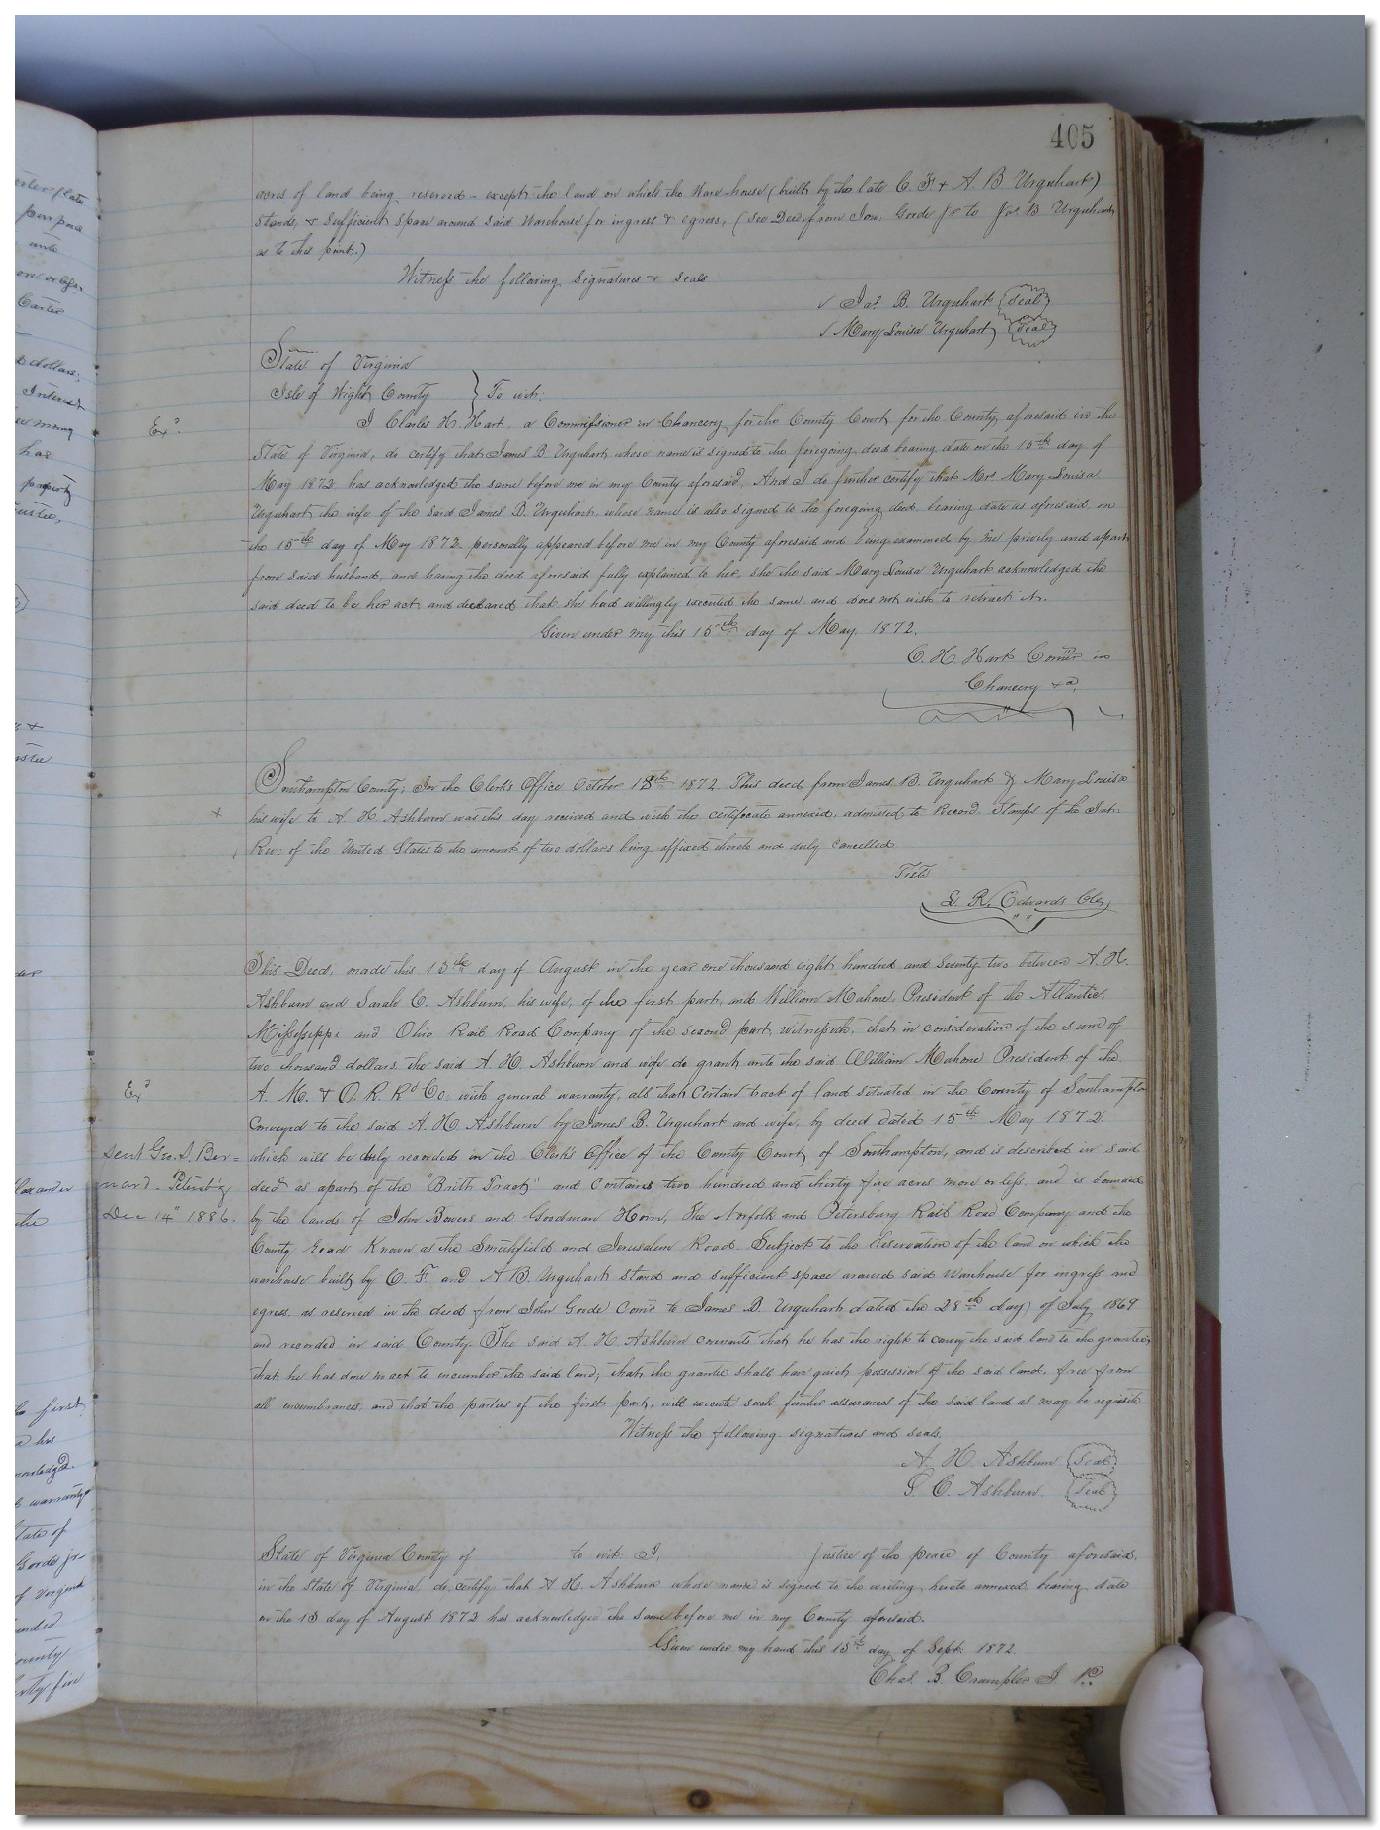 405
acres of land being reserved - except the land on which the Ware-house (built by the late C. F. & A. B Urquhart)
Stands, & Sufficient Space around said Warehouse for ingress & egress, (See Deed from Jno. Goode jr to Jas. B Urquhart
as to this point.)
Witness the following Signatures & Seals
Jas. B. Urquhart Seal
Mary Louisa Urquhart Seal
State of Virginia
Isle of Wight County } To wit:
Exd.
I Charles H. Hart, a Commissioner in Chancery for the County Court for the County aforesaid in the
State of Virginia, do certify that James B Urquhart, whose name is signed to the foregoing deed bearing date on the 15th day of
May 1872 has acknowledged the same before me in my County aforesaid. And I do further certify that Mrs Mary Louisa
Urquhart the wife of the said James B. Urquhart, whose name is also signed to the foregoing deed bearing date as aforesaid on
the 15th day of May 1872 personally appeared before me in my County aforesaid and being examined by me privily and apart
from said husband, and having the deed aforesaid fully explained to her, she the said Mary Louisa Urquhart acknowledged the
said deed to be her act, and declared that she had willingly executed the same and does not wish to retract it.
Given under my this 15th day of May, 1872.
C. H. Hart Comr in
Chancery &a.
Southampton County; In the Clerk's Office October 18th 1872 This deed from James B. Urquhart & Mary Louisa
his wife to A H. Ashburn was this day received and with the certificate annexed, admitted to Record. Stamps of the Int.
Rev: of the United States to the amount of two dollars being affixed thereto and duly cancelled
Teste
L. R. Edwards Clk
This Deed, made this 13th day of August in the year one thousand eight hundred and Seventy two between A. H.
Ashburn and Sarah C. Ashburn, his wife, of the first part, and William Mahone, President of the Atlantic,
Mississippi and Ohio Rail Road Company of the second part, witnesseth, that in consideration of the sum of
two thousand dollars, the said A. H. Ashburn and wife do grant unto the said William Mahone President of the
Exd
A. M. & O. R. Rd Co. with general warranty, all that Certain tract of land situated in the County of Southampton
Conveyed to the said A. H Ashburn by James B. Urquhart and wife, by deed dated 15th May 1872
Sent Geo. S. Ber=
which will be duly recorded in the Clerk's Office of the County Court of Southampton, and is described in said
nard - Petersb'g
deed as a part of the "Britt Tract" and Contains two hundred and thirty five acres more or less, and is bounded
Dec 14" 1886.
by the lands of John Bowers and Goodman Horn, The Norfolk and Petersburg Rail Road Company and the
County road Known as the Smithfield and Jerusalem Road Subject to the reservation of the land on which the
warehouse built by C. F. and A B. Urquhart stand and sufficient space around said Warehouse for ingress and
egress, as reserved in the deed from John Goode Comr to James B. Urquhart dated the 28th day of July 1869
and recorded in said County. The said A. H. Ashburn covenants that he has the right to convey the said land to the grantee;
that he has done no act to encumber the said land; that the grantee shall have quiet possession of the said land, free from
all incumbrances, and that the parties of the first part, will execute such further assurances of the said land as may be requisite
Witness the following signatures and seals.
A. H Ashburn Seal
S. C. Ashburn. Seal
State of Virginia County of to wit: I, Justice of the peace of County aforesaid,
in the State of Virginia, do, certify that A H. Ashburn whose name is signed to the writing hereto annexed bearing date
on the 13 day of August 1872 has acknowledged the same before me in my County aforesaid.
Given under my hand this 15th day of Sept. 1872
Chas. B. Crumpler J. P.